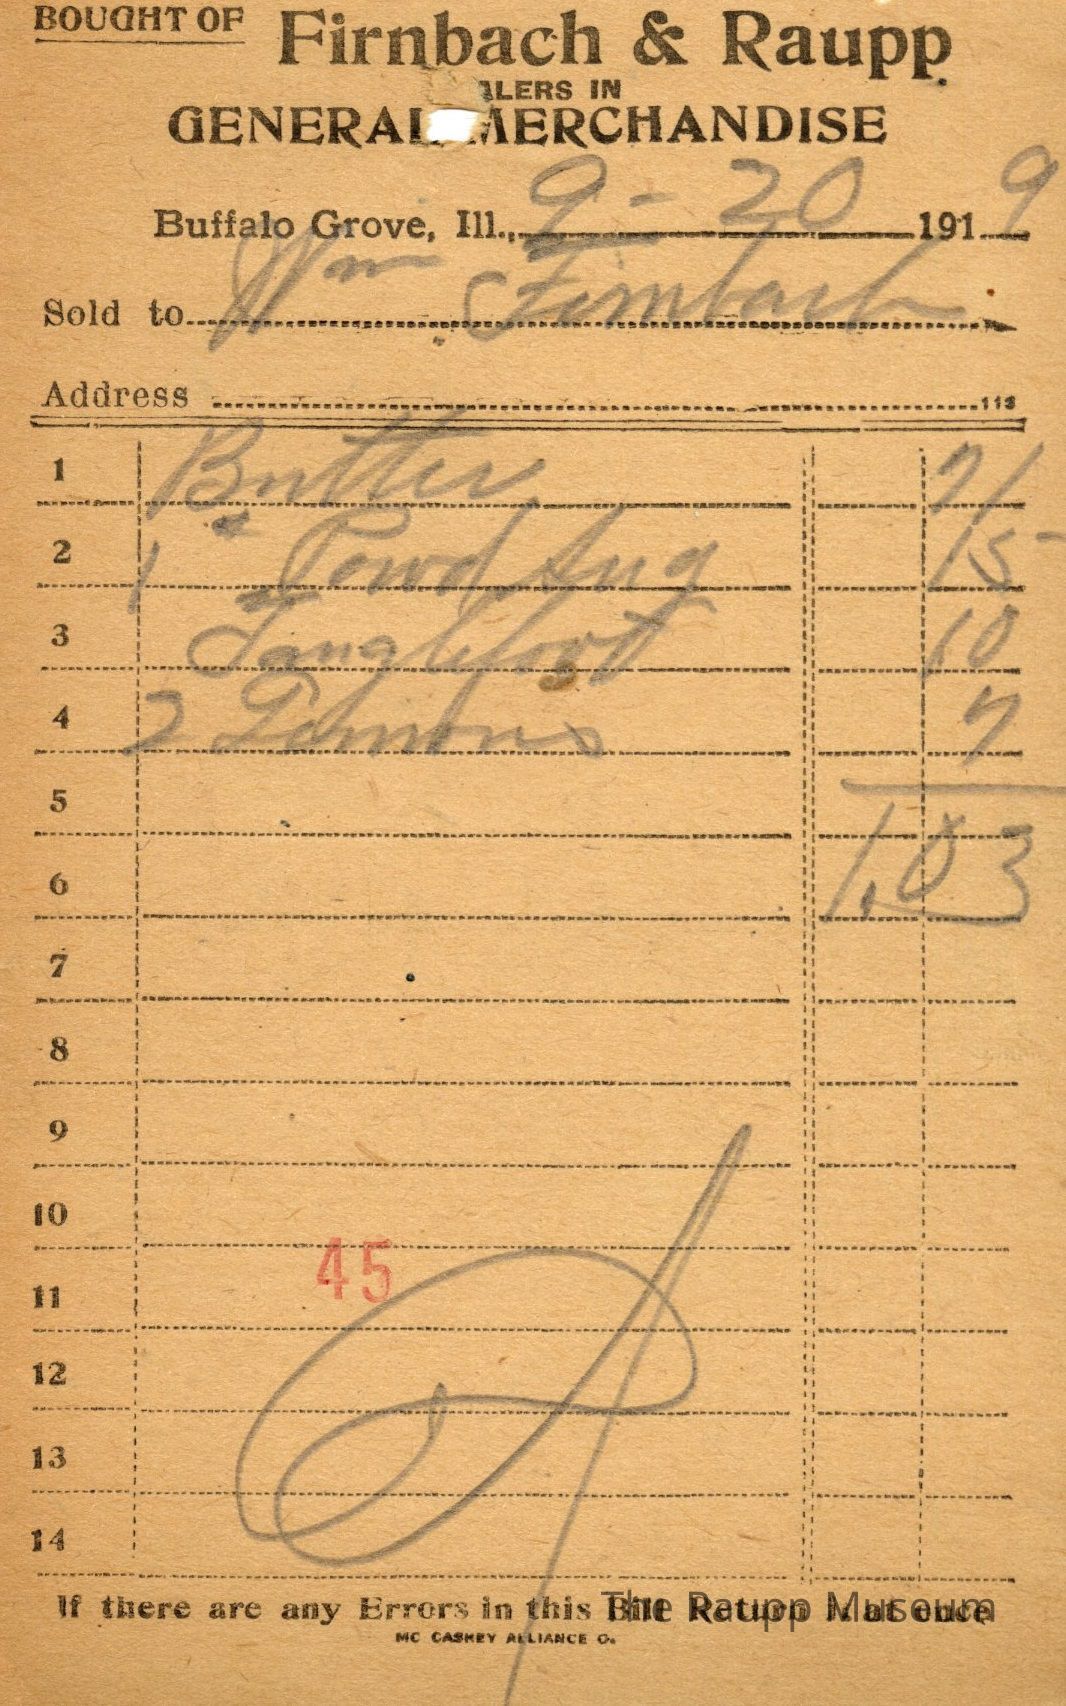 BOUGHT OF Firnbach & Raupp
ALERS IN
GENERAL MERCHANDISE
Buffalo Grove, Ill., 9-20 1919
Sold to Wm Firnbach
Address 113
1 Butter 71
2 1# Powd Sug 15
3 Tanglefoot 10
4 2 Lemons 7
5
6 1.03
7
8
9
10
45
11
12
13
14
If there are any Errors in this Bill Return it at once
The Raupp Museum
MC CASKEY ALLIANCE O.